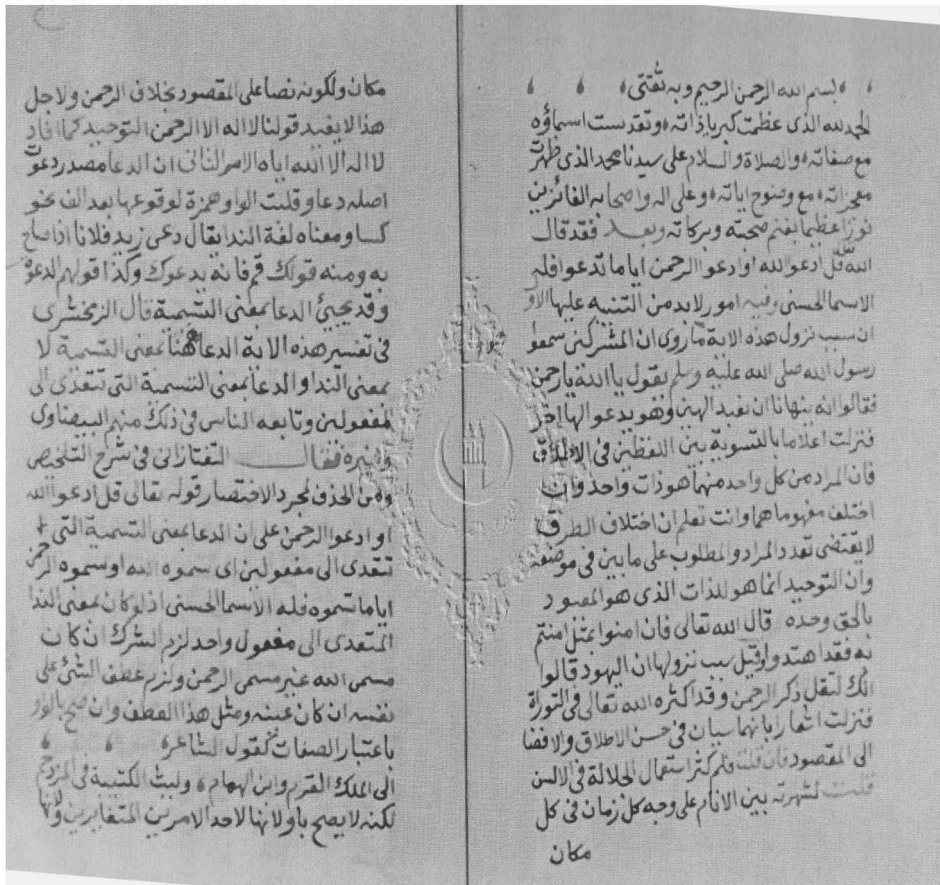 بسم الله الرحمن الرحيم وبه ثقتي
الحمد لله الذي عظمت كبرياء ذاته وتقدست اسماؤه
مع صفاته والصلاة والسلام على سيدنا محمد الذي ظهرت
معجزاته مع وضوح اياته وعلى اله واصحابه الفائزين
فوزا عظيما بغنم صحبته وبركاته وبعد فقد قال
الله قل ادعوا الله او ادعوا الرحمن اياما تدعوا فله
الاسما الحسنى وفيه امور لابد من التنبيه عليها الاو
ان سبب نزول هذه الاية ما روى ان المشركين سمعوا
رسول الله صلى الله عليه وسلم يقول يا الله يا رحمن
فقالوا انه ينهانا ان نعبد الهين وهو يدعو الها اخر
فنزلت اعلاما بالتسوية بين اللفظين في الاطلاق
فان المراد من كل واحد منهما هو ذات واحد وان
اختلف مفهوماهما وانت تعلم ان اختلاف الطرق
لا يقتضى تعدد المراد والمطلوب على ما بين في موضعه
وان التوحيد انما هو للذات الذي هو المقصود
بالحق وحده قال الله تعالى فان امنوا بمثل امنتم
به فقد اهتدوا وقيل سبب نزولها ان اليهود قالوا
انك لتقل ذكر الرحمن وقد اكثره الله تعالى في التوراة
فنزلت اشعارا بانهما سيان في حسن الاطلاق والافضا
الى المقصود فان قلت فلم كثر استعمال الجلالة في الالسن
قلت لشهرته بين الانام على وجه كل زمان في كل
مكان
مكان ولكونه نصا على المقصود بخلاف الرحمن ولاجل
هذا لا يفيد قولنا لا اله الا الرحمن التوحيد كما افاد
لا اله الا الله اياه الامر الثاني ان الدعا مصدر دعوت
اصله دعاو قلبت الواو همزة لوقوعها بعد الف نحو
كسا ومعناه لغة الندا يقال دعى زيد فلانا اذا صاح
به ومنه قولك قم فانه يدعوك وكذا قولهم الدعوة
وقد يجيئ الدعا بمعنى التسمية قال الزمخشرى
في تفسير هذه الاية الدعا ههنا بمعنى التسمية لا
بمعنى الندا والدعا بمعنى التسمية التى تتعدى الى
المفعولين وتابعه الناس في ذلك منهم البيضاوى
وغيره فقال التفتازانى في شرح التلخيص
ومن الحذف لمجرد الاختصار قوله تعالى قل ادعوا الله
او ادعوا الرحمن على ان الدعا بمعنى التسمية التى
تتعدى الى مفعولين اى سموه الله او سموه الرحمن
اياما تسموه فله الاسما الحسنى اذ لو كان بمعنى الندا
المتعدى الى مفعول واحد لزم الشرك ان كان
مسمى الله غير مسمى الرحمن ولزم عطف الشئ على
نفسه ان كان عينه ومثل هذا العطف وان صح بالواو
باعتبار الصفات كقول الشاعر
الى الملك القرم وابن الهمام وليث الكتيبة في المزدحم
لكنه لا يصح باو لانها لاحد الامرين المتغايرين ولانها